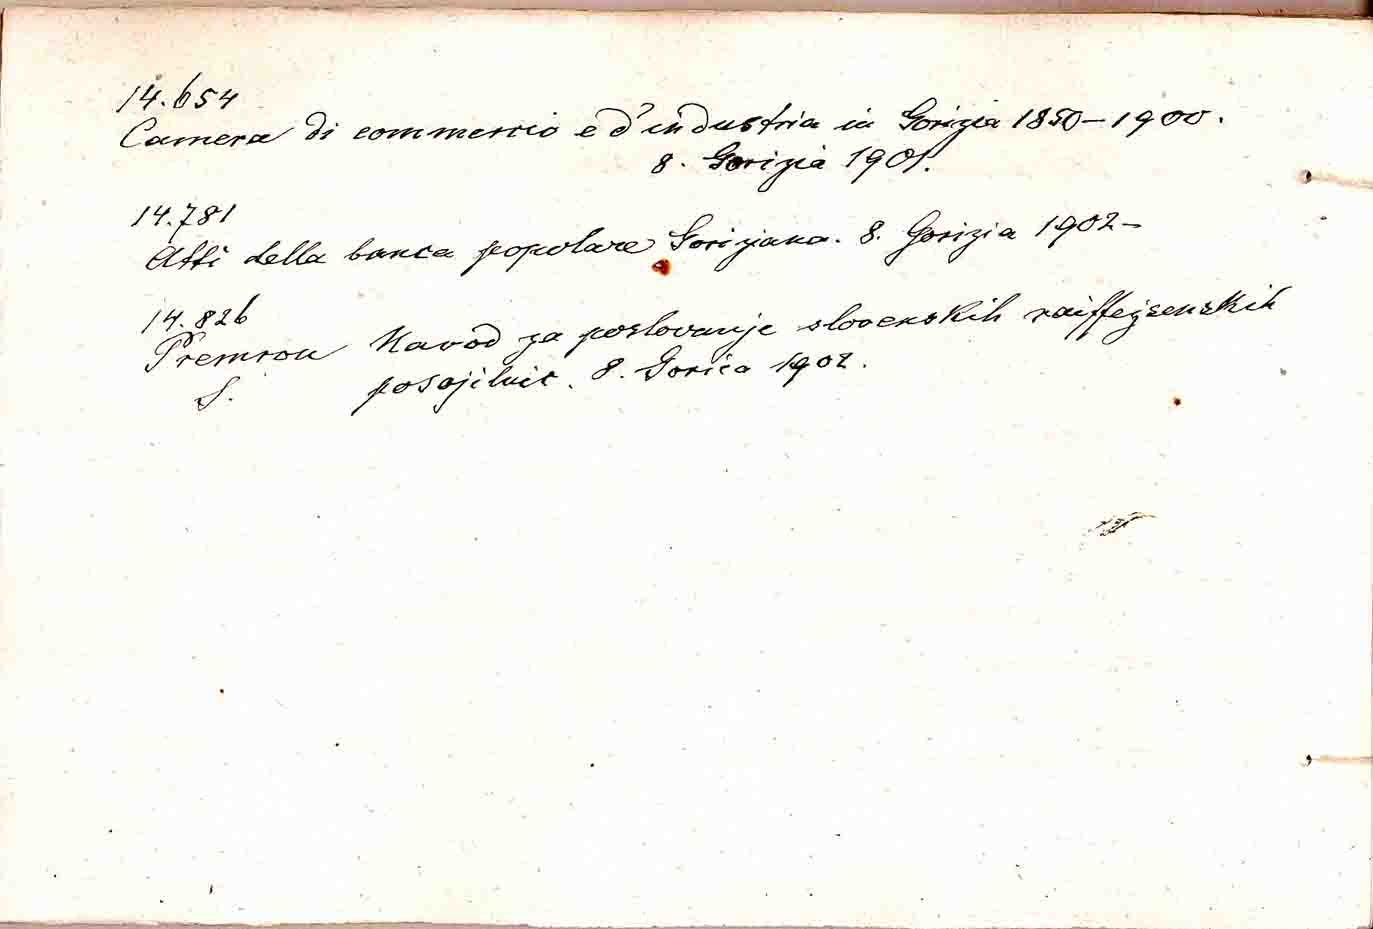 14.654
Camera di commercio e d'industria in Gorizia 1850-1900.
8. Gorizia 1901.
14.781
Atti della banca popolare Goriziana. 8. Gorizia 1902-
14.826
Premrou Navod za poslovanje slovenskih raiffejsenskih
S. posojilnic. 8. Gorica 1902.